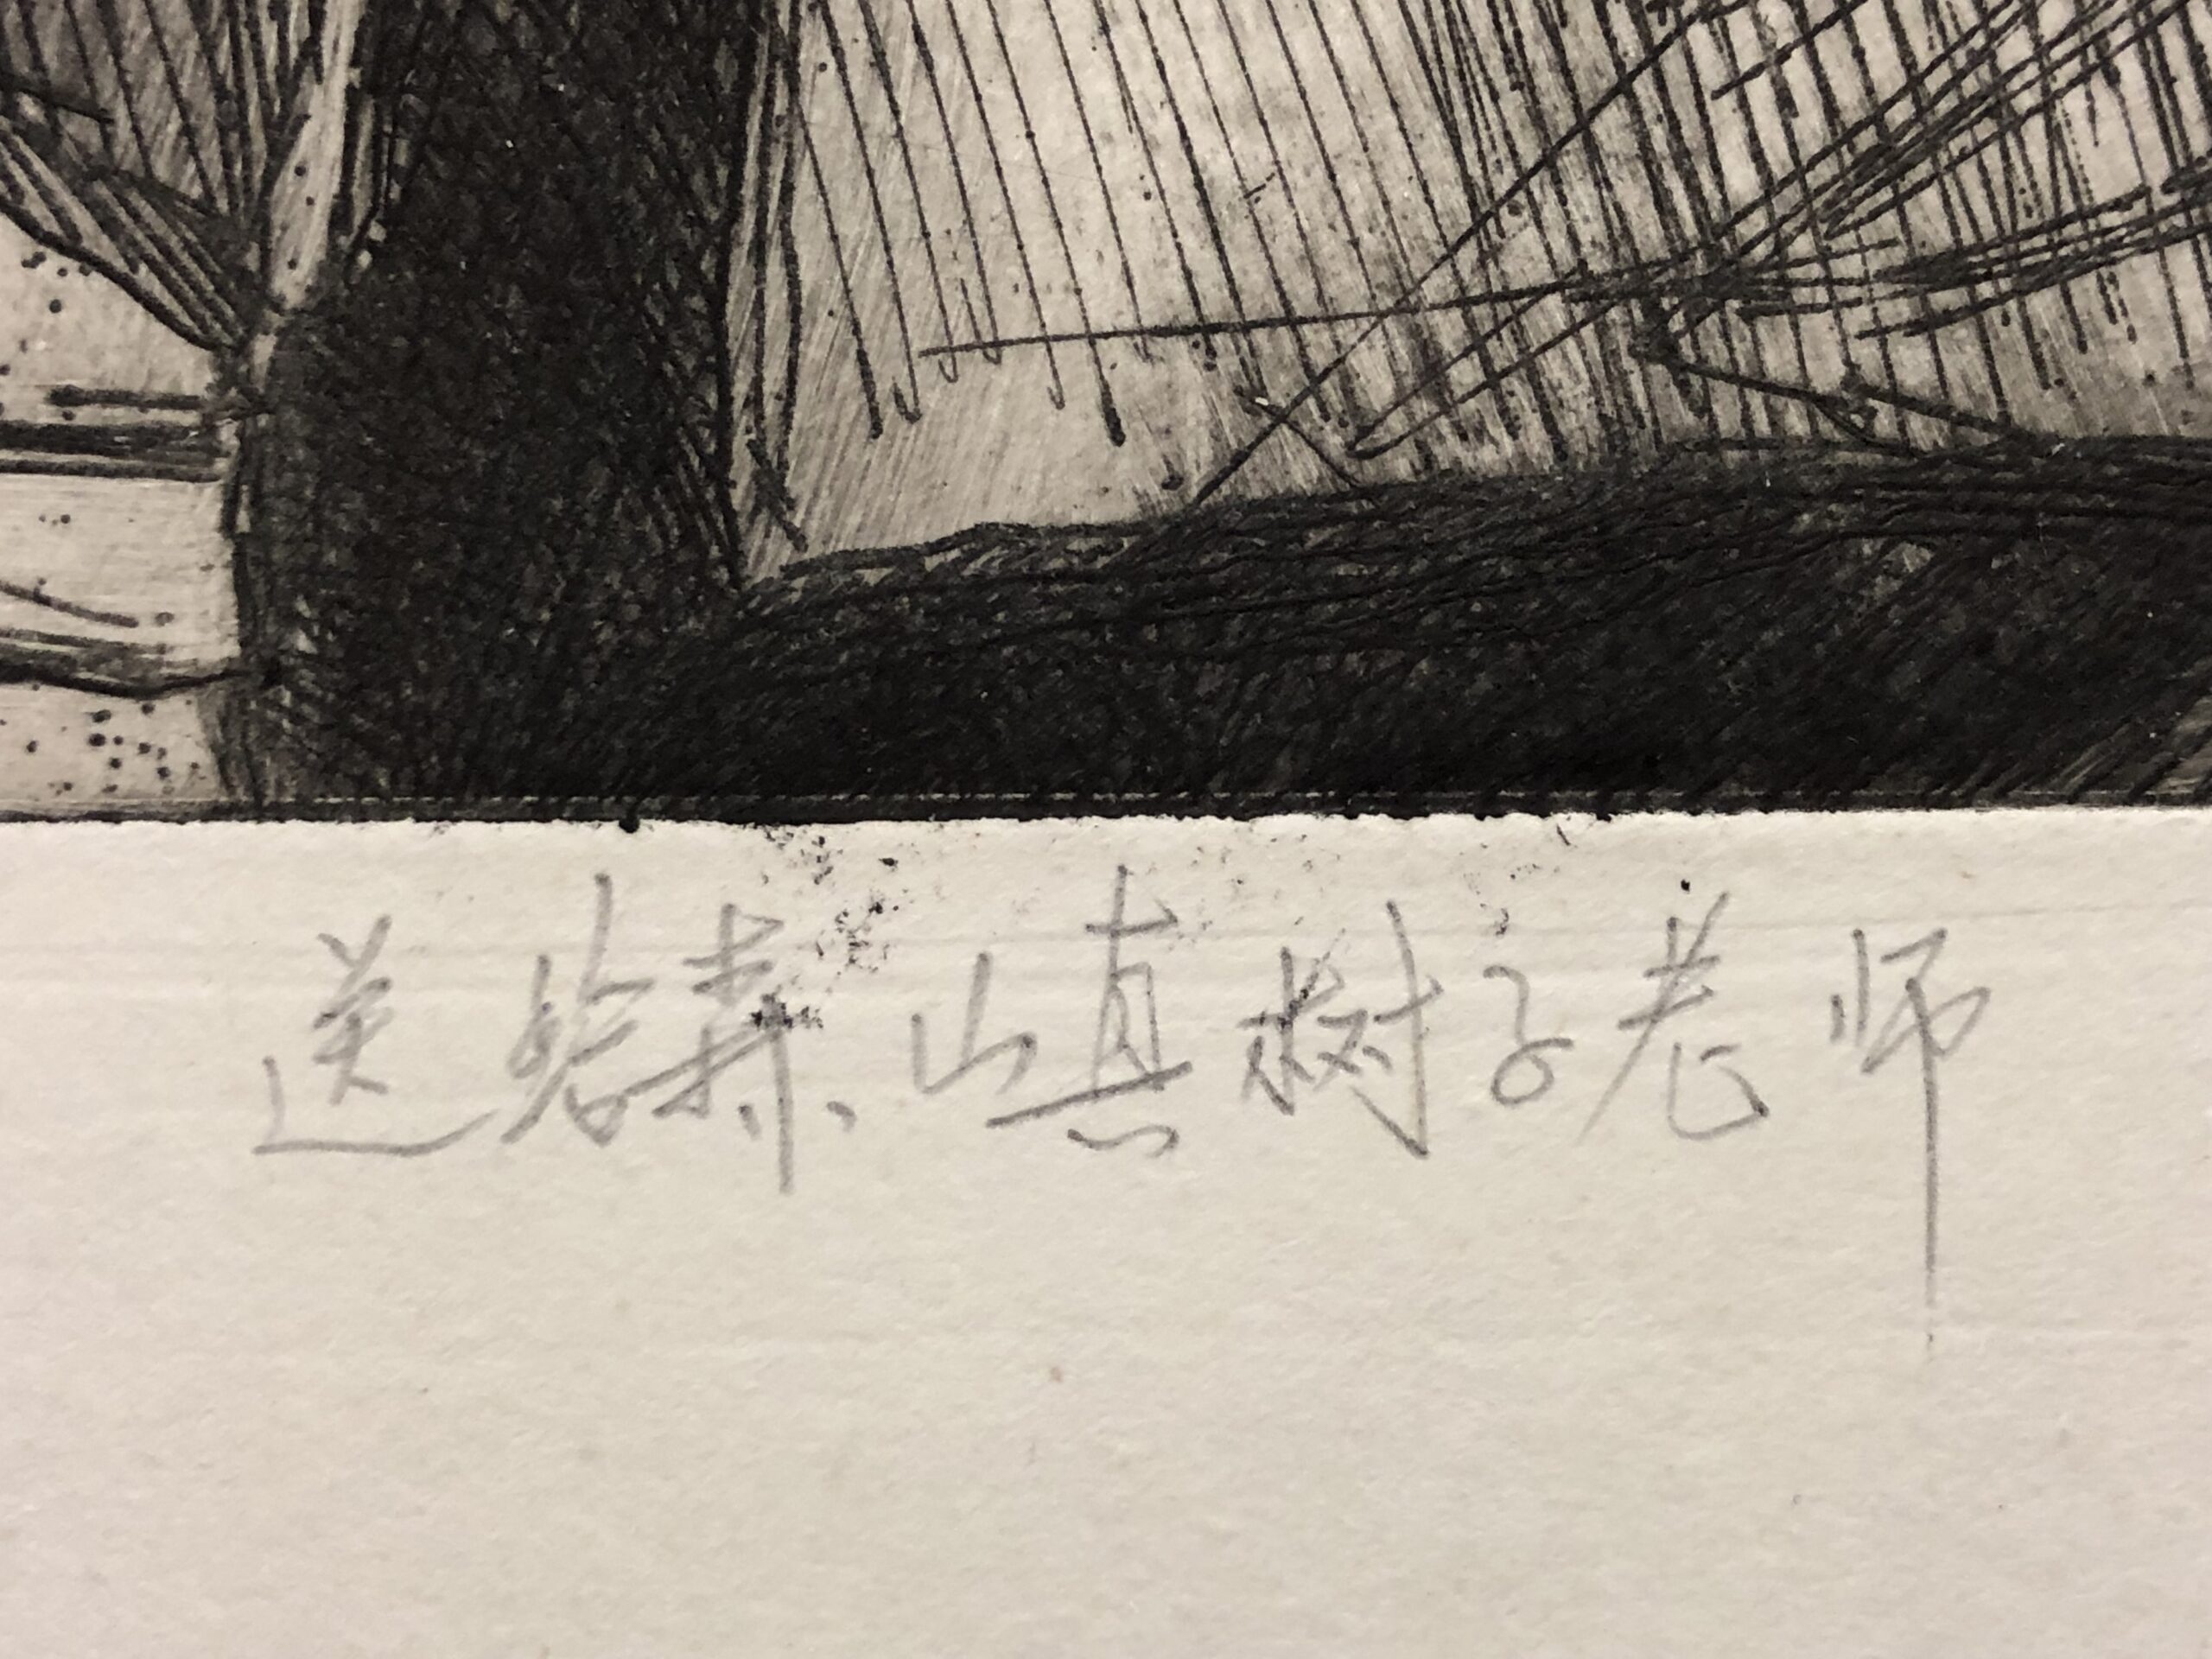 送给森山真树子老师